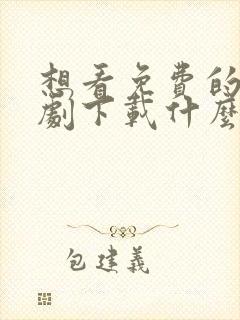 想看免费的
劇下载什麼
包建義